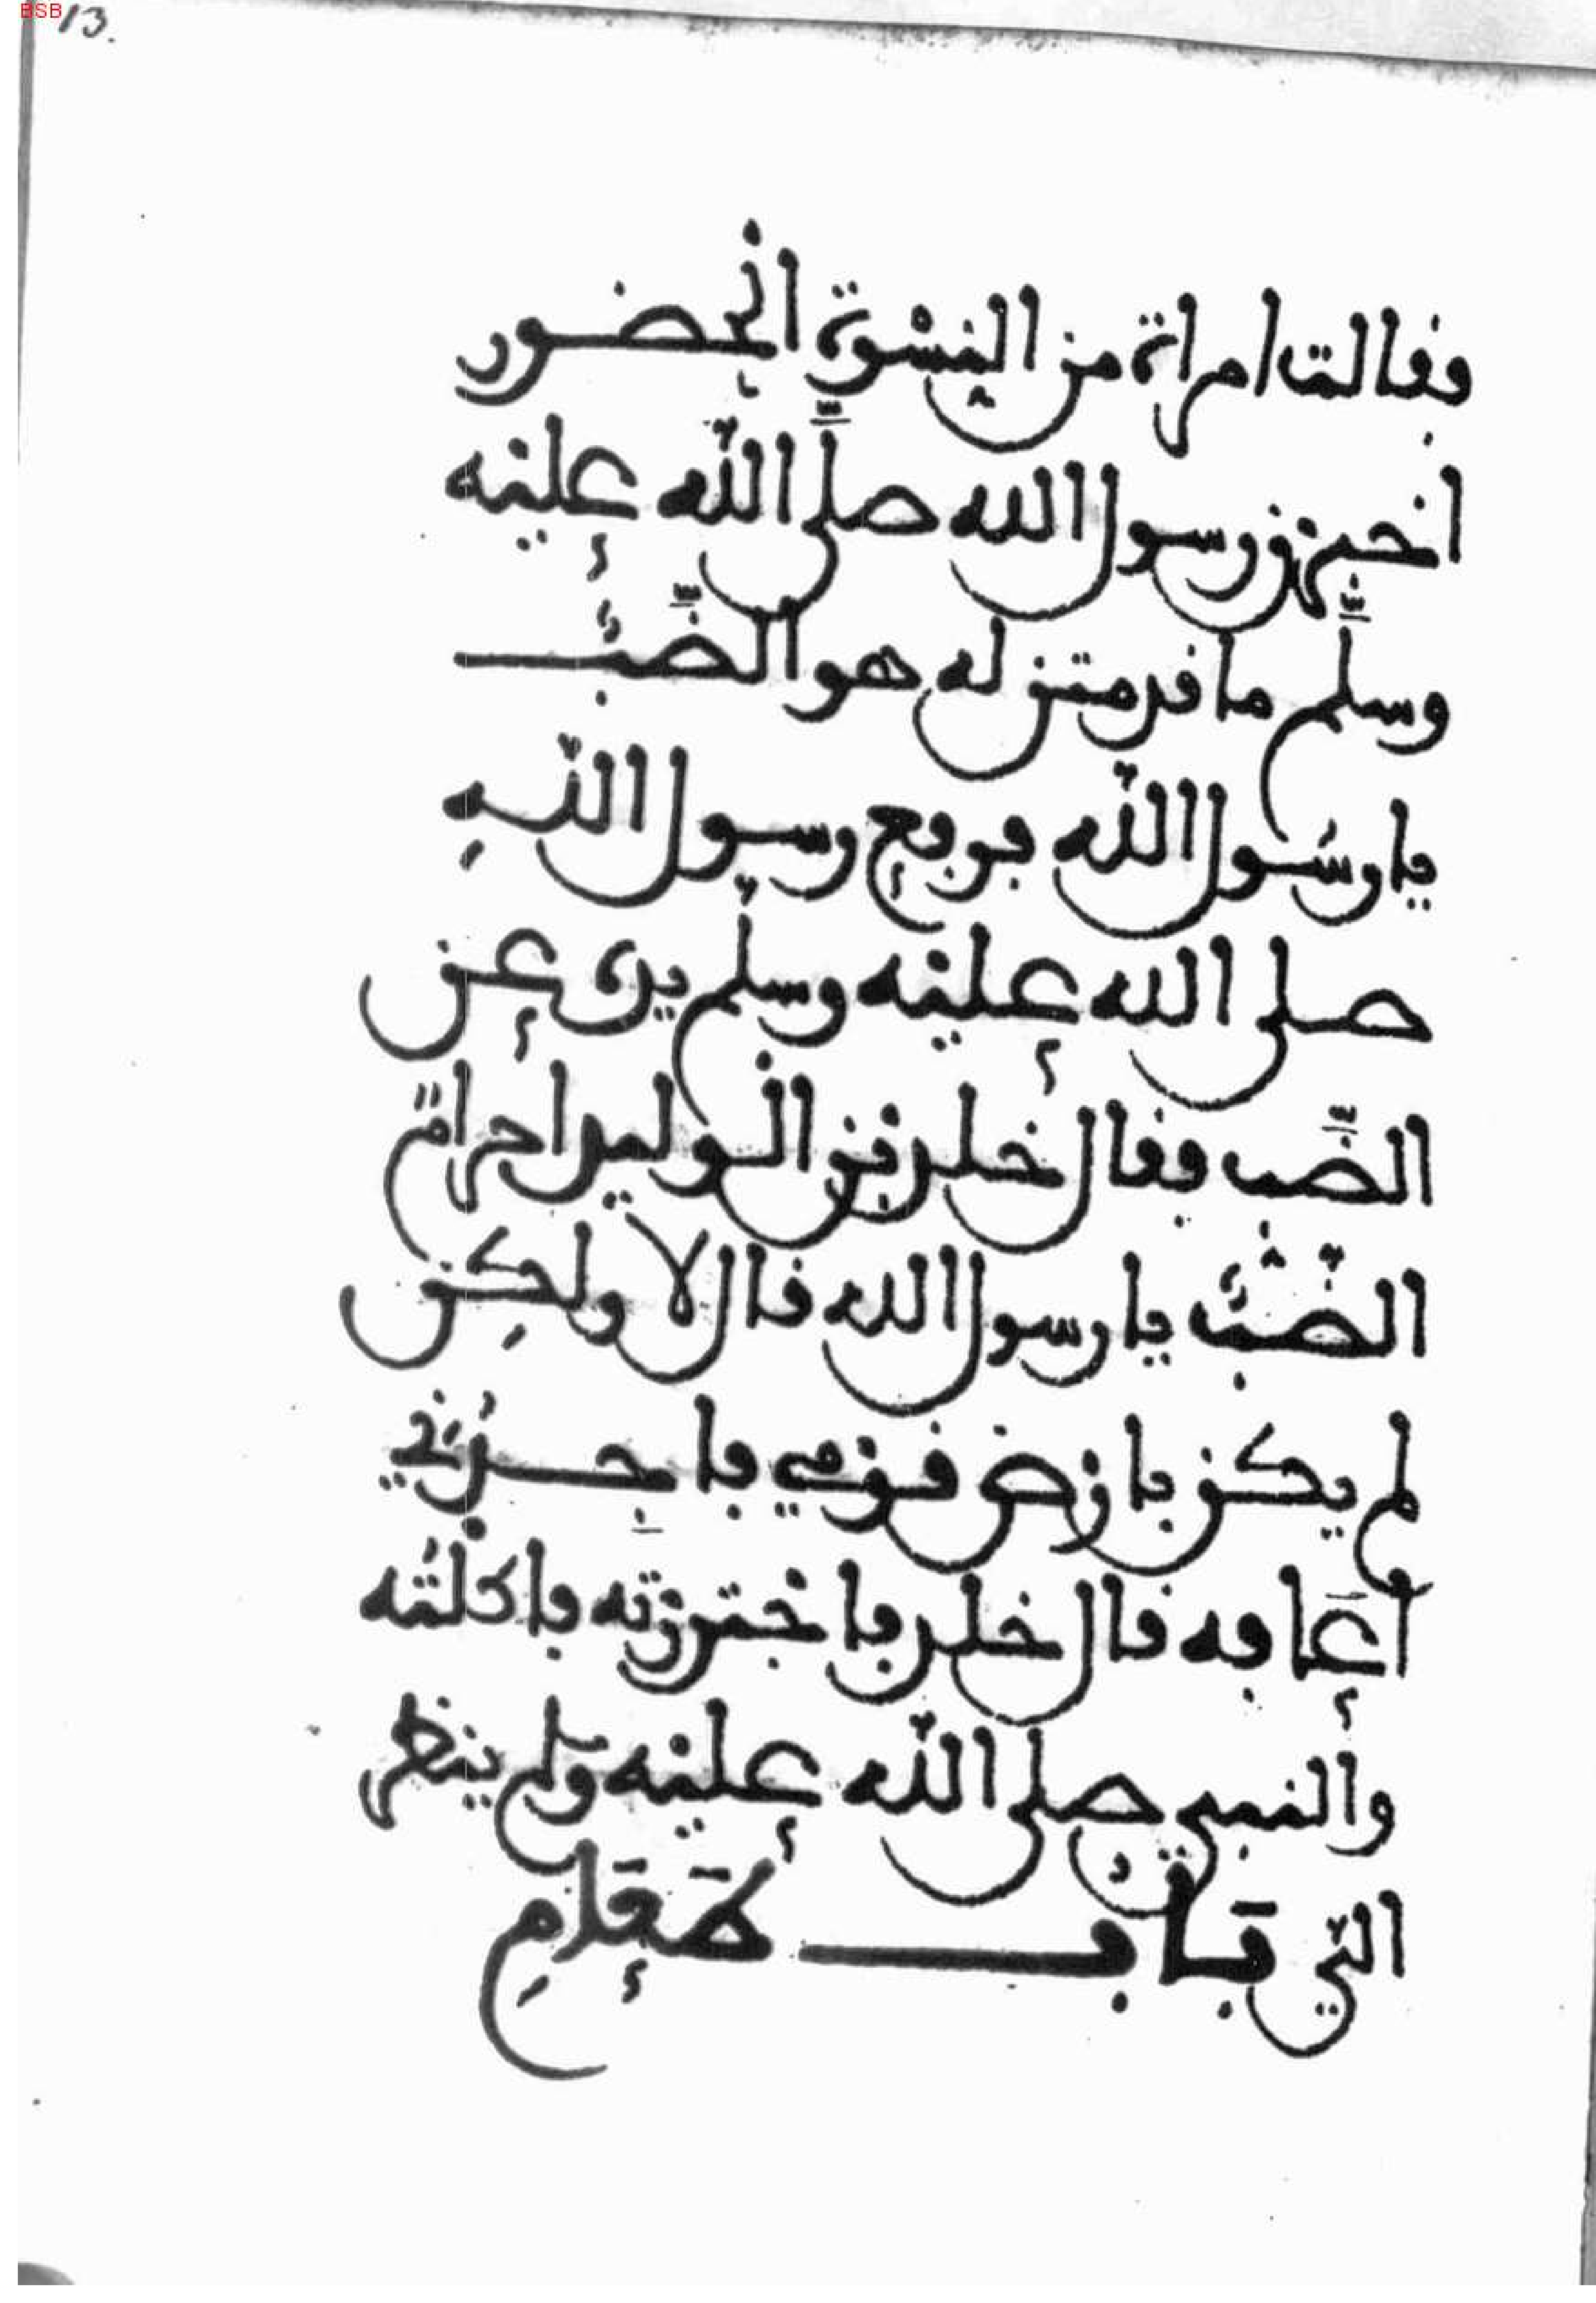 BSB 13.
فقالت امراة من النسْوة الحضور
اخبرن رسول الله صلَّى اللّه عليْه
وسلَّم ما قدمتن له هو الضَّبُّ
يا رسُول اللّه فرفع رسول اللّهِ
صلى الله عليْه وسلّم يده عن
الضَّب فقال خلد بن الوليد أحرامٌ
الضَّبُّ يا رسول الله قال لا ولكِن
لم يكن بارْض قوْمي فاجِدُني
أعَافه قال خلد فاجْتررْته فاكلْتُه
والنبي صلى اللّه عليْه وسلم ينظر
الّتي بَاب طَعَامِ